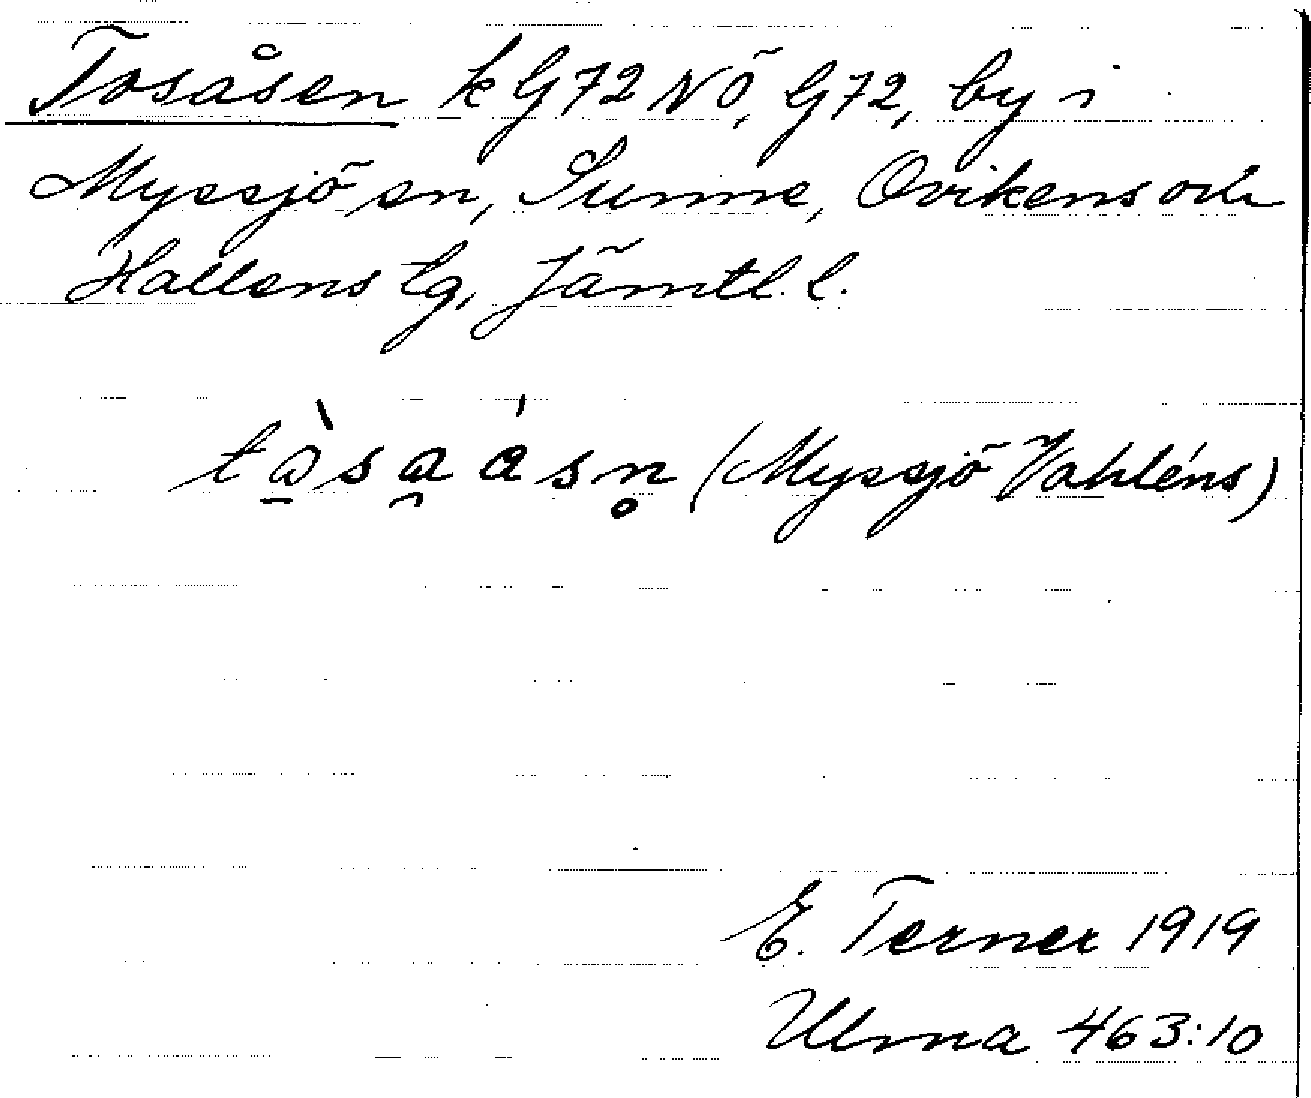 Tosåsen k G72 NÖ, G72, by i
Myssjö sn, Sunne, Ovikens och
Hallens tg, Jämtl. l.
tà̱sa̯a̯ásn̥ (Myssjö Vahléns)
E. Terner 1919
Ulma 463:10